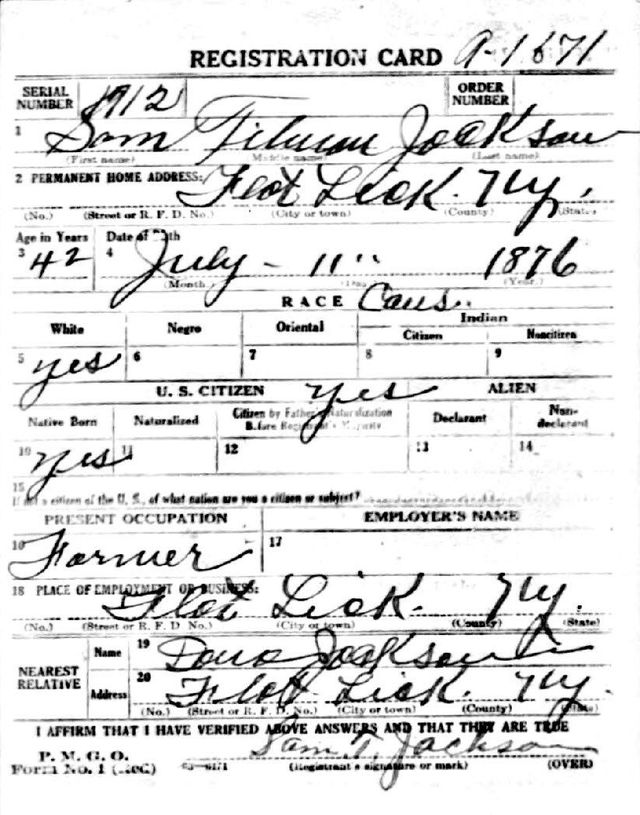 REGISTRATION CARD A-1671
SERIAL NUMBER 1912 ORDER NUMBER
1 Sam Tilman Jackson
(First name) (Middle name) (Last name)
2 PERMANENT HOME ADDRESS: Flat Lick. Ky.
(No.) (Street or R. F. D. No.) (City or town) (County) (State)
Age in Years Date of Birth
3 42 4 July - 11" 1876
(Month) (Day) (Year)
RACE Caus..
White Negro Oriental Indian
Citizen Noncitizen
5 yes 6 7 8 9
U. S. CITIZEN yes ALIEN
Native Born Naturalized Citizen by Father's Naturalization Before Registrant's Majority Declarant Non-declarant
10 yes 11 12 13 14
15 If not a citizen of the U. S., of what nation are you a citizen or subject?
PRESENT OCCUPATION EMPLOYER'S NAME
16 Farmer 17
18 PLACE OF EMPLOYMENT OR BUSINESS: Flat Lick. Ky.
(No.) (Street or R. F. D. No.) (City or town) (County) (State)
NEAREST RELATIVE Name 19 Jackson
Address 20 Flat Lick. Ky.
(No.) (Street or R. F. D. No.) (City or town) (County) (State)
I AFFIRM THAT I HAVE VERIFIED ABOVE ANSWERS AND THAT THEY ARE TRUE
P. M. G. O. Sam T. Jackson
Form No. 1 (Red) 03-6171 (Registrant's signature or mark) (OVER)